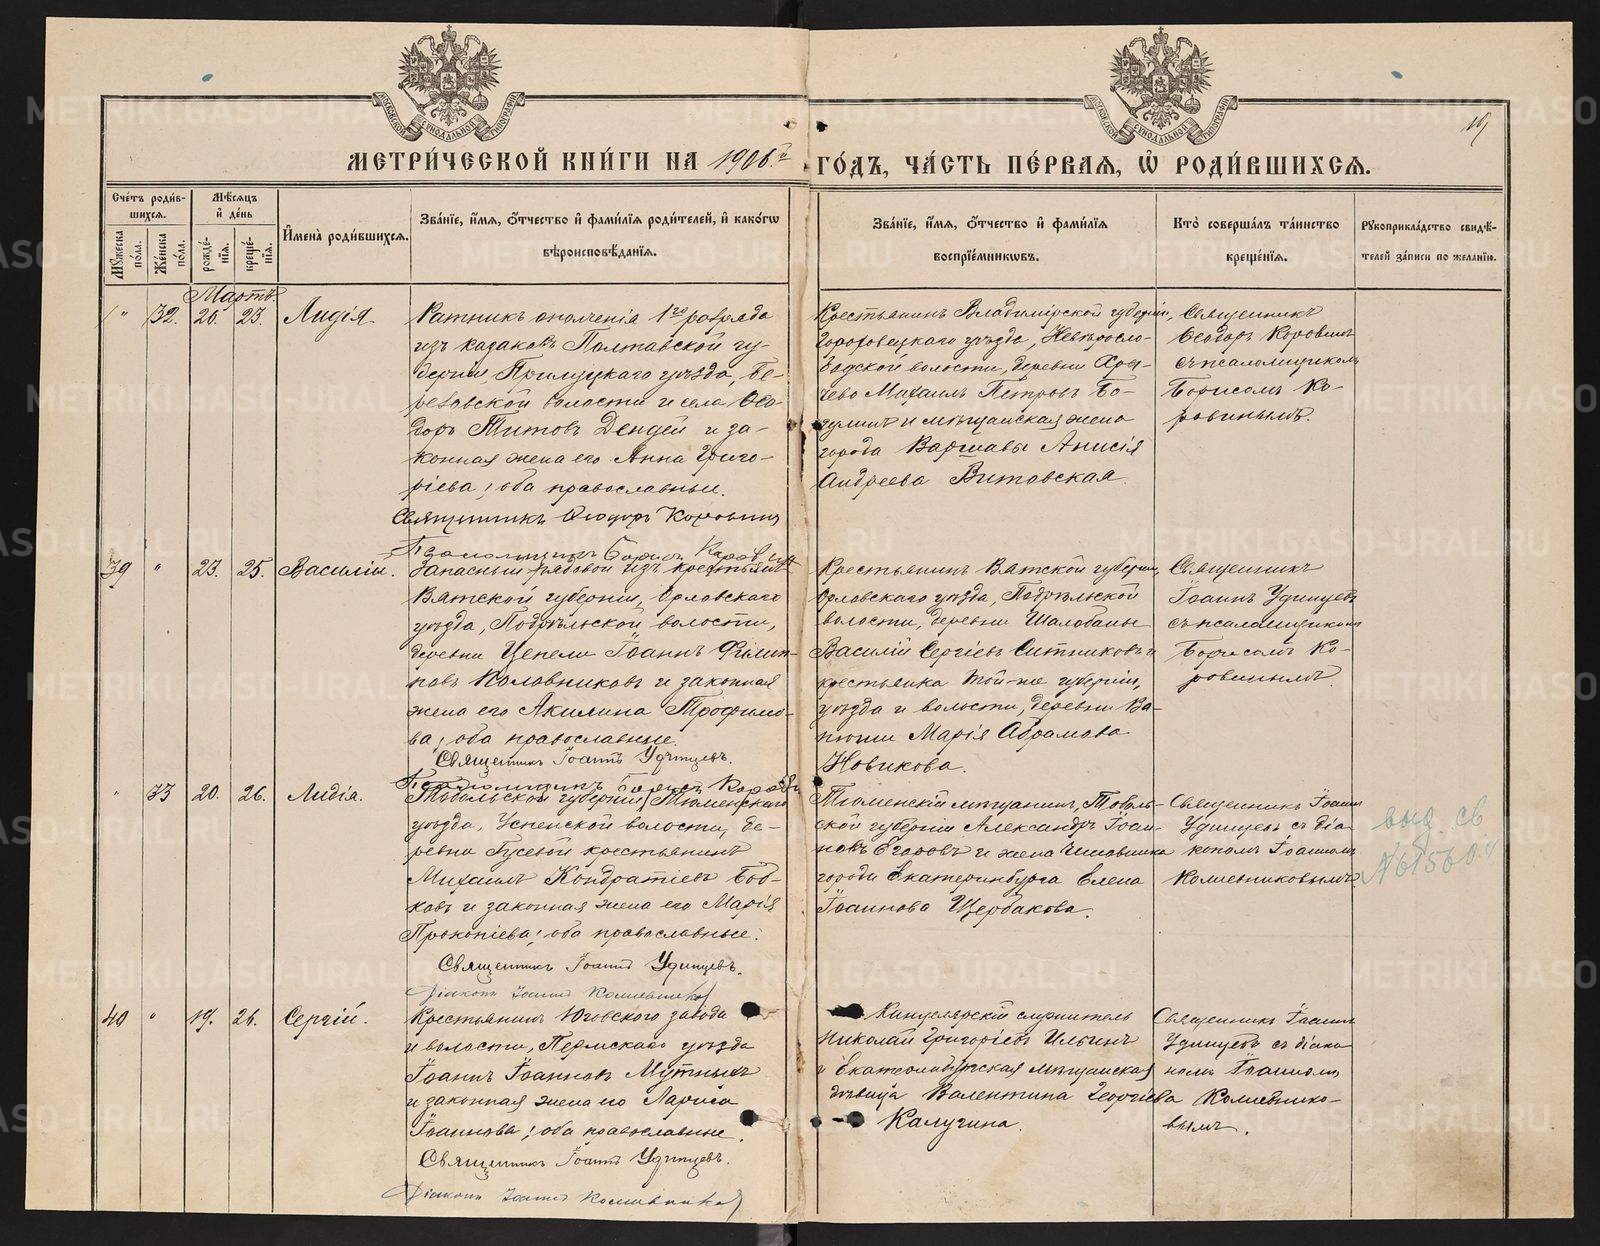 МЕТРИ́ЧЕСКОЙ КНИ́ГИ НА 1906.й ГО́ДЪ, ЧА́СТЬ ПЕ́РВАѦ, Ѡ҆ РОДИ́ВШИХСѦ.
Сче́тъ роди́в-
шихсѧ.
Мꙋжеска
по́ла.
Же́нска
по́ла.
Мѣ́сѧцъ
и҆ де́нь
рожде́-
нїѧ.
креще́-
нїѧ.
И҆мена̀ роди́вшихсѧ.
Зва́нїе, и҆́мѧ, ѻ҆́тчество и҆ фами́лїѧ роди́телей, и҆ како́гѡ
вѣроисповѣ́данїѧ.
Зва́нїе, и҆́мѧ, ѻ҆́тчество и҆ фами́лїѧ
воспрїе́мникѡвъ.
Кто̀ соверша́лъ та́инство
креще́нїѧ.
Рꙋкоприкла́дство свидѣ́-
телей за́писи по жела́нїю.
Мартъ.
" 32. 20. 23. Лидія.
Ратникъ ополченія 1го разряда
изъ казаковъ Полтавской гу-
берніи, Прилуцкаго уѣзда, Бе-
резовской волости и села Ѳео-
доръ Титовъ Дендей и за-
конная жена его Анна Григо-
ріева; оба православные.
Священникъ Ѳеодоръ Коровинъ
Псаломщикъ Борисъ Коровинъ
Крестьянинъ Владимірской губерніи,
Гороховецкаго уѣзда,
волости, деревни
Михаилъ Петровъ Бо-
и мѣщанская жена
города Варшавы Анисія
Андреева Витовская.
Священникъ
Ѳеодоръ Коровинъ
съ псаломщикомъ
Борисомъ Ко-
ровинымъ.
39 " 23. 25. Василій.
Запасный рядовой изъ крестьянъ
Вятской губерніи, Орловскаго
уѣзда, Подрѣльской волости,
деревни Цепели Іоаннъ Филип-
повъ Коловниковъ и законная
жена его Акилина Трофимо-
ва; оба православные.
Священникъ Іоаннъ Удинцевъ.
Псаломщикъ Борисъ Коровинъ
Крестьянинъ Вятской губерніи,
Орловскаго уѣзда, Подрѣльской
волости, деревни Шалобаны
Василій Сергіевъ Ситниковъ и
крестьянка той-же губерніи,
уѣзда и волости, деревни Ва-
нюши Марія Абрамова
Новикова.
Священникъ
Іоаннъ Удинцевъ
съ псаломщикомъ
Борисомъ Ко-
ровинымъ.
" 33 20. 26. Лидія.
Тобольской губерніи, Тюменскаго
уѣзда, Успенской волости, де-
ревни Гусевой крестьянинъ
Михаилъ Кондратіевъ Боб-
ковъ и законная жена его Марія
Прокопіева; оба православные.
Священникъ Іоаннъ Удинцевъ.
Діаконъ Іоаннъ Колмениковъ
Тюменскій мѣщанинъ, Тоболь-
ской губерніи Александръ Іоан-
новъ Егоровъ и жена чиновника
города Екатеринбурга Елена
Іоаннова Щербакова.
Священникъ Іоаннъ
Удинцевъ съ діа-
кономъ Іоанномъ
выд. св
40 " 19. 26. Сергій.
Крестьянинъ Юговскаго завода
и волости, Пермскаго уѣзда
Іоаннъ Іоанновъ Мутныхъ
и законная жена его Лариса
Іоаннова; оба православные.
Священникъ Іоаннъ Удинцевъ.
Діаконъ Іоаннъ
Канцелярскій служитель
Николай Григоріевъ Ильинъ
и Екатеринбургская мѣщанская
дѣвица Валентина Георгіева
Калугина.
Священникъ Іоаннъ
Удинцевъ съ діако-
номъ Іоанномъ